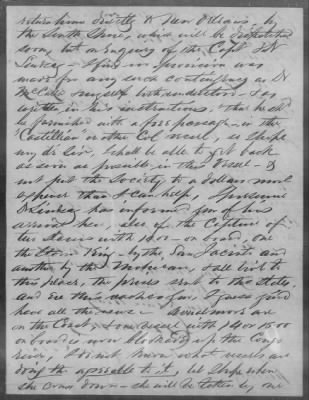 return him directly to New Orleans, by
the South Shore, which will be despatched
soon, but on enquiry of the Capt. I
find no provision was
made for any such contingency as Dr
McCalla & myself both understood - & as
wrote in his instructions, "that he shd
be furnished with a free passage - in the
Castillian" or other Col vessel, so I hope
my dr Sir, I shall be able to get back
as soon as possible in this vessel - &
not put the Society to a dollar more
expense than I can help, I presume
has informed you of his
arrival here, also of the Capture of
two slavers with on board, one
the Storm King - by the San Jacinto and
another by the Mohican, & all brot to
this place, the prizes sent to the States,
and are then
have all the news - Several more are
on the Coast, & one vessel with 1400
on board is now blockaded up the Congo
river, I do not know what vessels are
doing the agreeable to it, but I hope when
she comes down - she will be taken by one